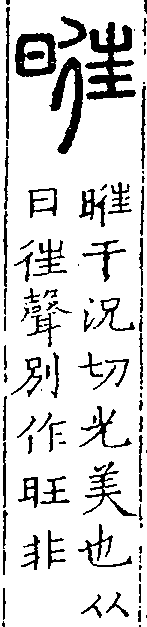 暀
暀于況切光美也从
日徃聲別作旺非